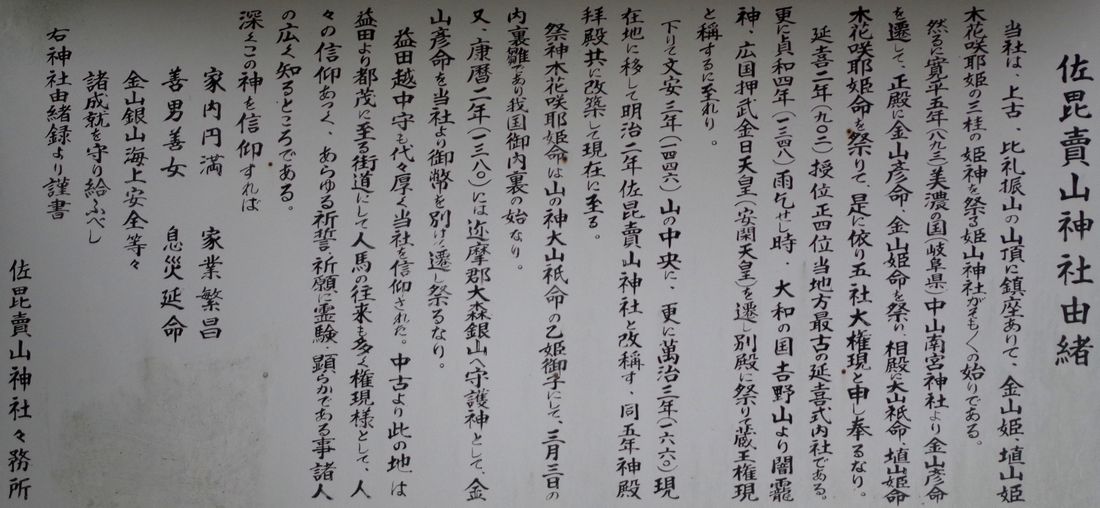 佐毘賣山神社由緒
当社は、上古、比礼振山の山頂に鎮座ありて、金山姫・埴山姫
木花咲耶姫の三柱の姫神を祭る姫山神社がそも〱の始りである。
然るに寛平五年(八九三)美濃の国(岐阜県)中山南宮神社より金山彦命
を遷して、正殿に金山彦命・金山姫命を祭り、相殿に大山祇命・埴山姫命
木花咲耶姫命を祭りて、是に依り五社大権現と申し奉るなり。
延喜二年(九〇二)授位正四位当地方最古の延喜式内社である。
更に貞和四年(一三四八)雨乞せし時、大和の国吉野山より闇龗
神、広国押武金日天皇(安閑天皇)を遷し別殿に祭りて蔵王権現
と稱するに至れり。
下りて文安三年(一四四六)山の中央に、更に萬治三年(一六六〇)現
在地に移して明治二年佐毘賣山神社と改稱す、同五年神殿
拜殿共に改築して現在に至る。
祭神木花咲耶姫命は山の神大山祇命の乙姫御子にして、三月三日の
内裏雛であり我国御内裏の始なり。
又、康暦二年(一三八〇)には迩摩郡大森銀山へ守護神として、金
山彦命を当社より御幣を別け遷し祭るなり。
益田越中守も代々厚く当社を信仰された。中古より此の地は
益田より都茂に至る街道にして人馬の往来も多く権現様として、人
々の信仰あつく、あらゆる祈誓・祈願に霊験・顕らかである事諸人
の広く知るところである。
深くこの神を信仰すれば
家内円満　家業繁昌
善男善女　息災延命
金山銀山海上安全等々
諸成就を守り給ふべし
右神社由緒録より謹書
佐毘賣山神社々務所